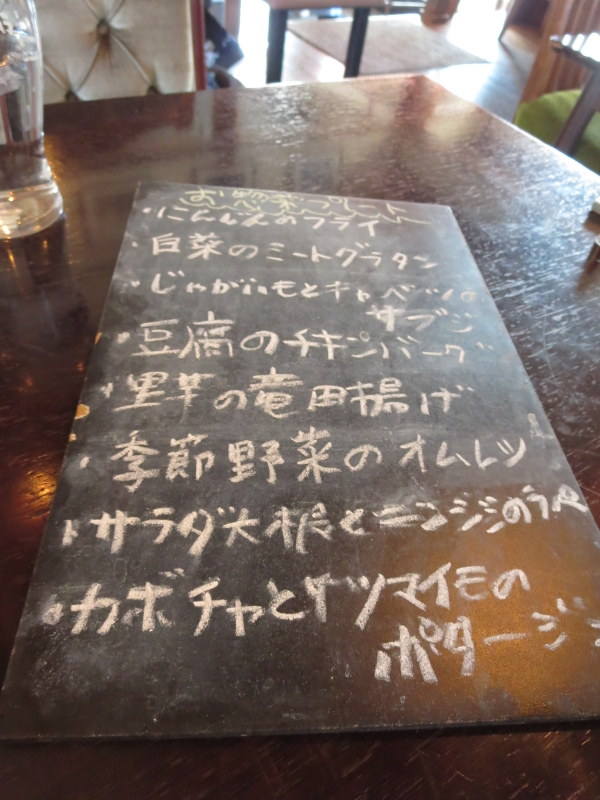 お惣菜プレート
・にんじんのフライ
・白菜のミートグラタン
・じゃがいもとキャベツの
サブジ
・豆腐のチキンバーグ
・里芋の竜田揚げ
・季節野菜のオムレツ
・サラダ大根とニンジンのラペ
・カボチャとサツマイモの
ポタージュ